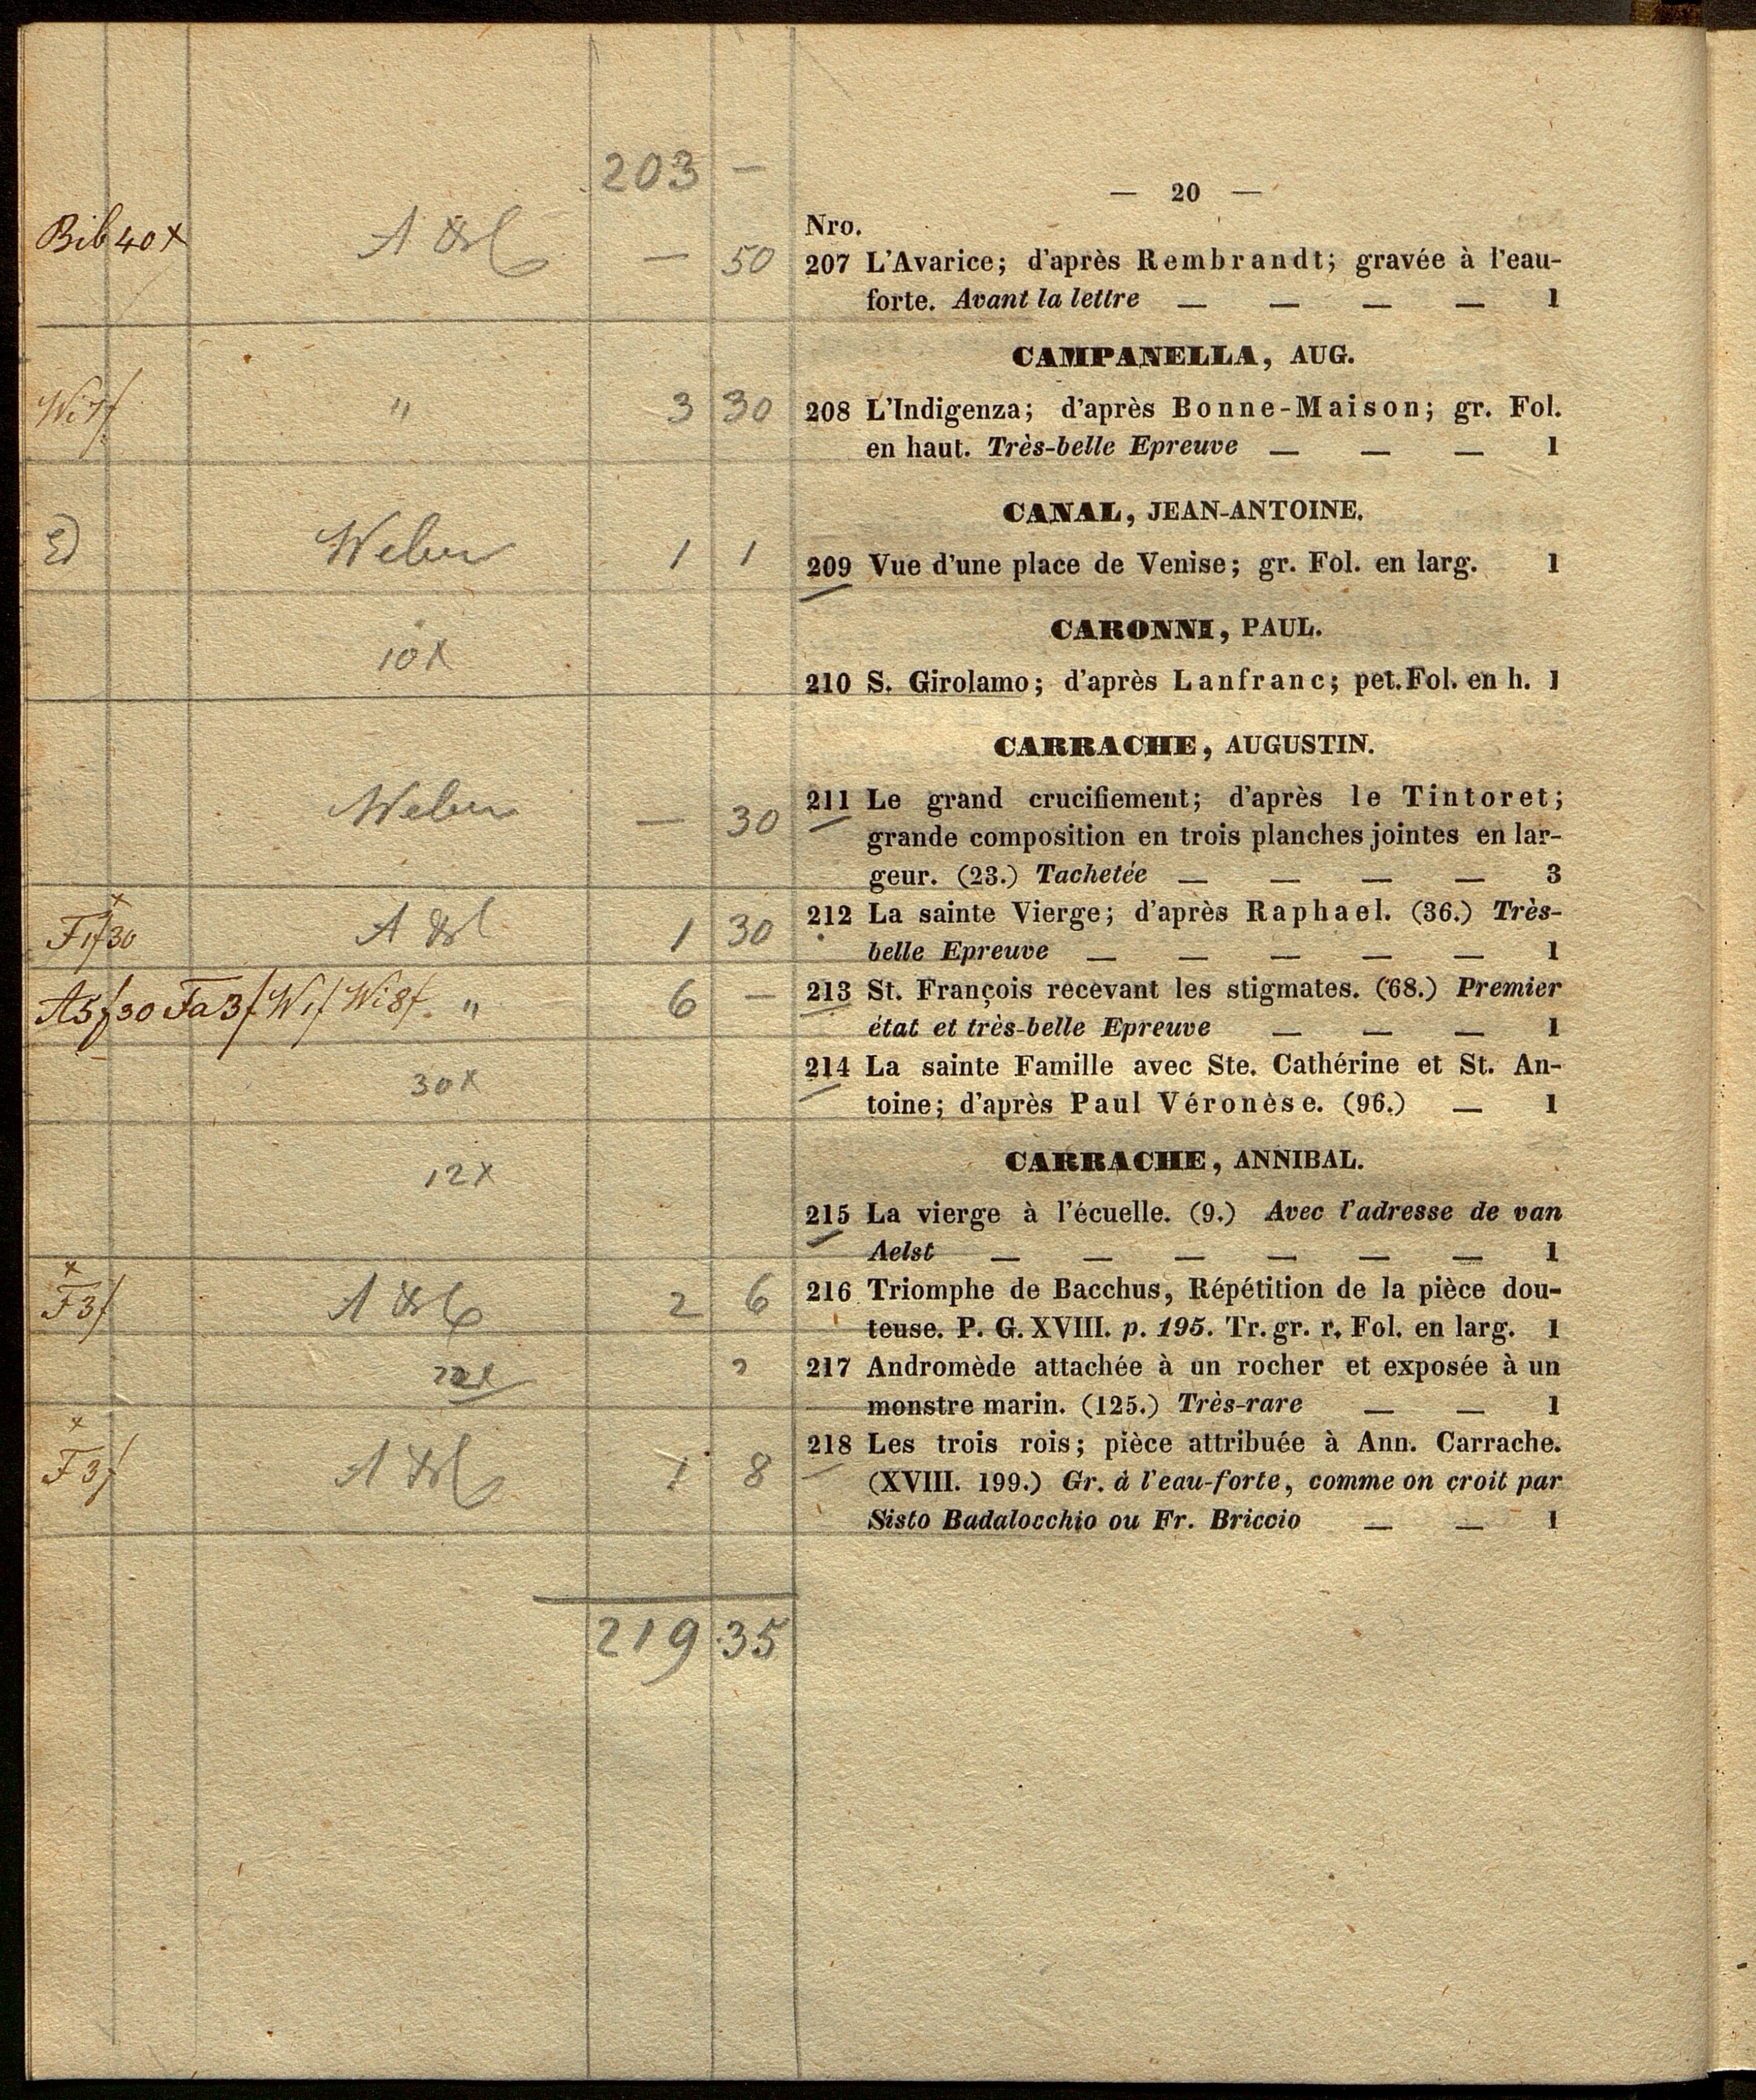 203 —
— 20 —
Nro.
Bib 40 x — 50 207 L'Avarice; d'après Rembrandt; gravée à l'eau-
forte. Avant la lettre — — — — 1
CAMPANELLA, AUG.
" 3 30 208 L'Indigenza; d'après Bonne-Maison; gr. Fol.
en haut. Très-belle Epreuve — — — 1
CANAL, JEAN-ANTOINE.
Weber 1 1 209 Vue d'une place de Venise; gr. Fol. en larg. 1
CARONNI, PAUL.
10x 210 S. Girolamo; d'après Lanfranc; pet. Fol. en h. 1
CARRACHE, AUGUSTIN.
Weber — 30 211 Le grand crucifiement; d'après le Tintoret;
grande composition en trois planches jointes en lar-
geur. (23.) Tachetée — — — — 3
F 1f 30 1 30 212 La sainte Vierge; d'après Raphael. (36.) Très-
belle Epreuve — — — — — 1
A5f30 Fa3f Wf Wi8f. " 6 — 213 St. François recevant les stigmates. (68.) Premier
état et très-belle Epreuve — — — 1
30x 214 La sainte Famille avec Ste. Cathérine et St. An-
toine; d'après Paul Véronèse. (96.) — 1
CARRACHE, ANNIBAL.
12x 215 La vierge à l'écuelle. (9.) Avec l'adresse de van
Aelst — — — — — — 1
x F3f 2 6 216 Triomphe de Bacchus, Répétition de la pièce dou-
teuse. P. G. XVIII. p. 195. Tr. gr. r. Fol. en larg. 1
217 Andromède attachée à un rocher et exposée à un
monstre marin. (125.) Très-rare — — 1
x F3f 1 8 218 Les trois rois; pièce attribuée à Ann. Carrache.
(XVIII. 199.) Gr. à l'eau-forte, comme on croit par
Sisto Badalocchio ou Fr. Briccio — — 1
219 35